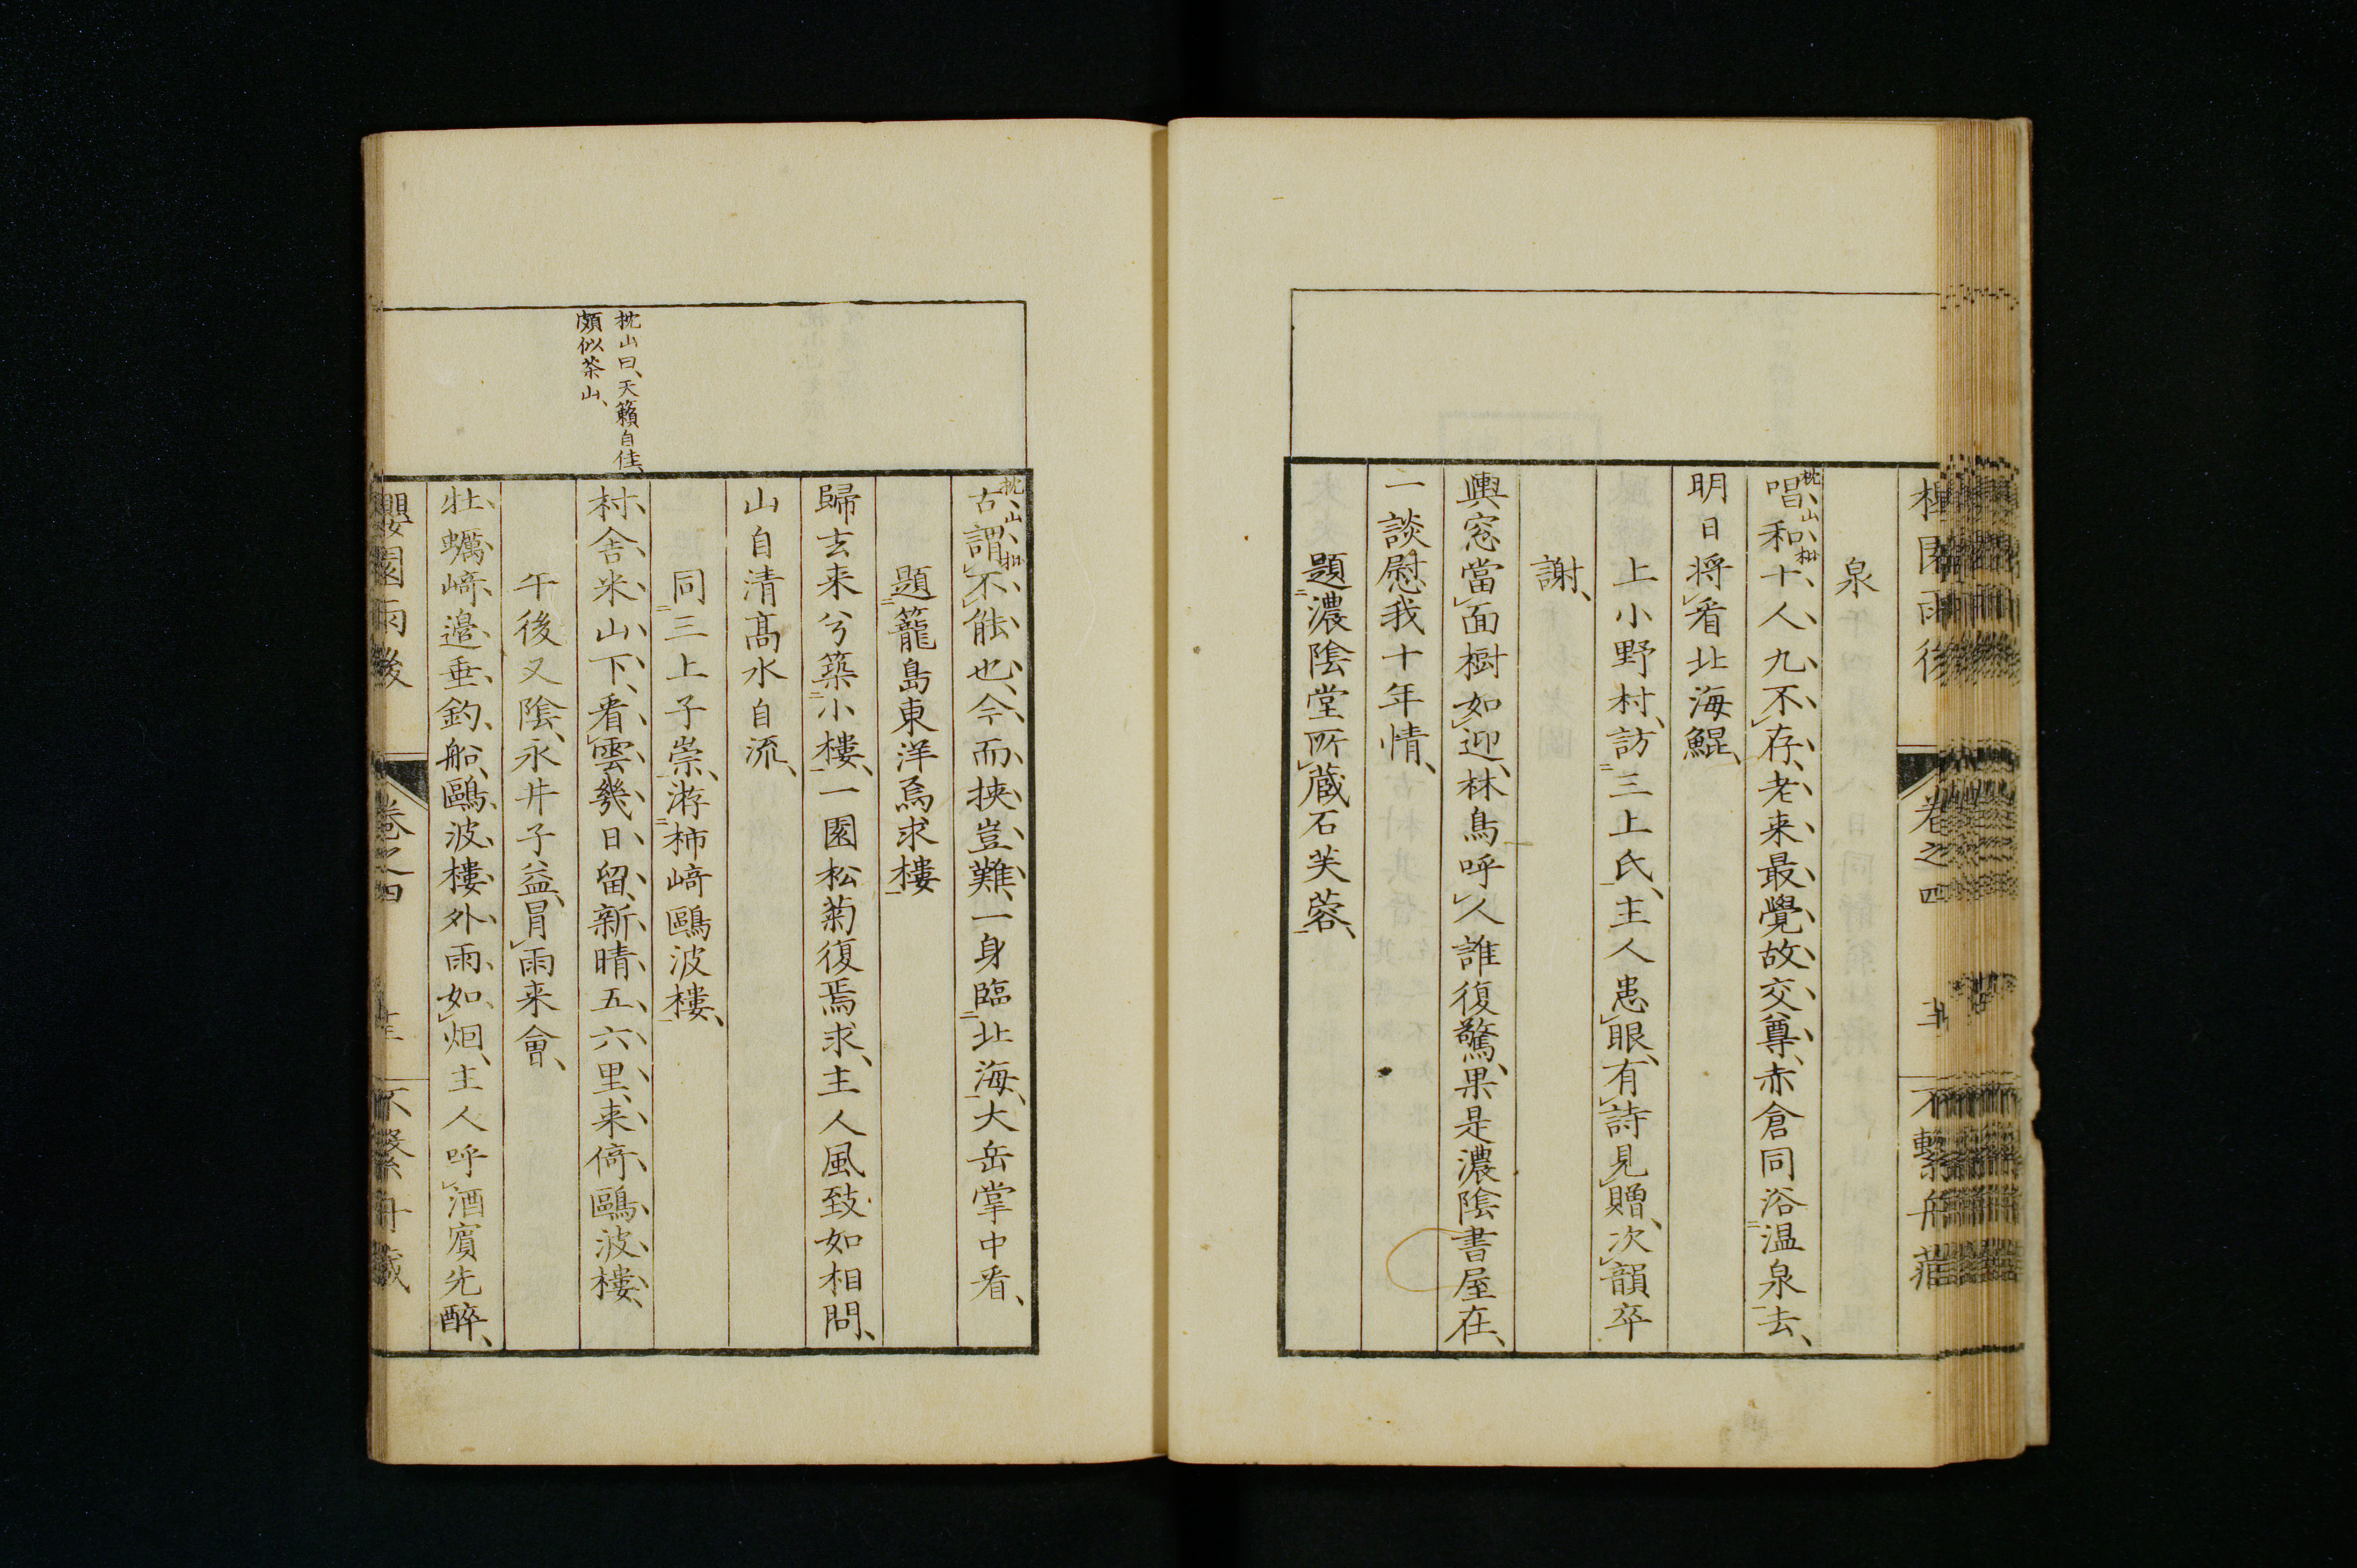 泉
枕山批
唱和十人九不存、老来最覺故交尊、赤倉同浴温泉去、
明日将看北海鯤、
上小野村、訪三上氏、主人患眼、有詩見贈、次韻卒
謝、
輿窓當面樹如迎、林鳥呼人誰復驚、果是濃陰書屋在、
一談慰我十年情、
題濃陰堂所蔵石芙蓉、
枕山批
古謂不能也、今而挟豈難、一身臨北海、大岳掌中看、
題籠島東洋焉求樓
歸去来兮築小樓、一園松菊復焉求、主人風致如相問、
山自清髙水自流、
同三上子崇、游柿﨑鷗波樓、
枕山曰、天籟自佳、
頗似茶山、
村舎米山下、看雲幾日留、新晴五六里、来倚鷗波樓、
午後又陰、永井子益、冐雨来會、
牡蠣﨑邉垂釣船、鷗波樓外雨如烟、主人呼酒賓先醉、
櫻園雨後
卷之四
不繫舟藏